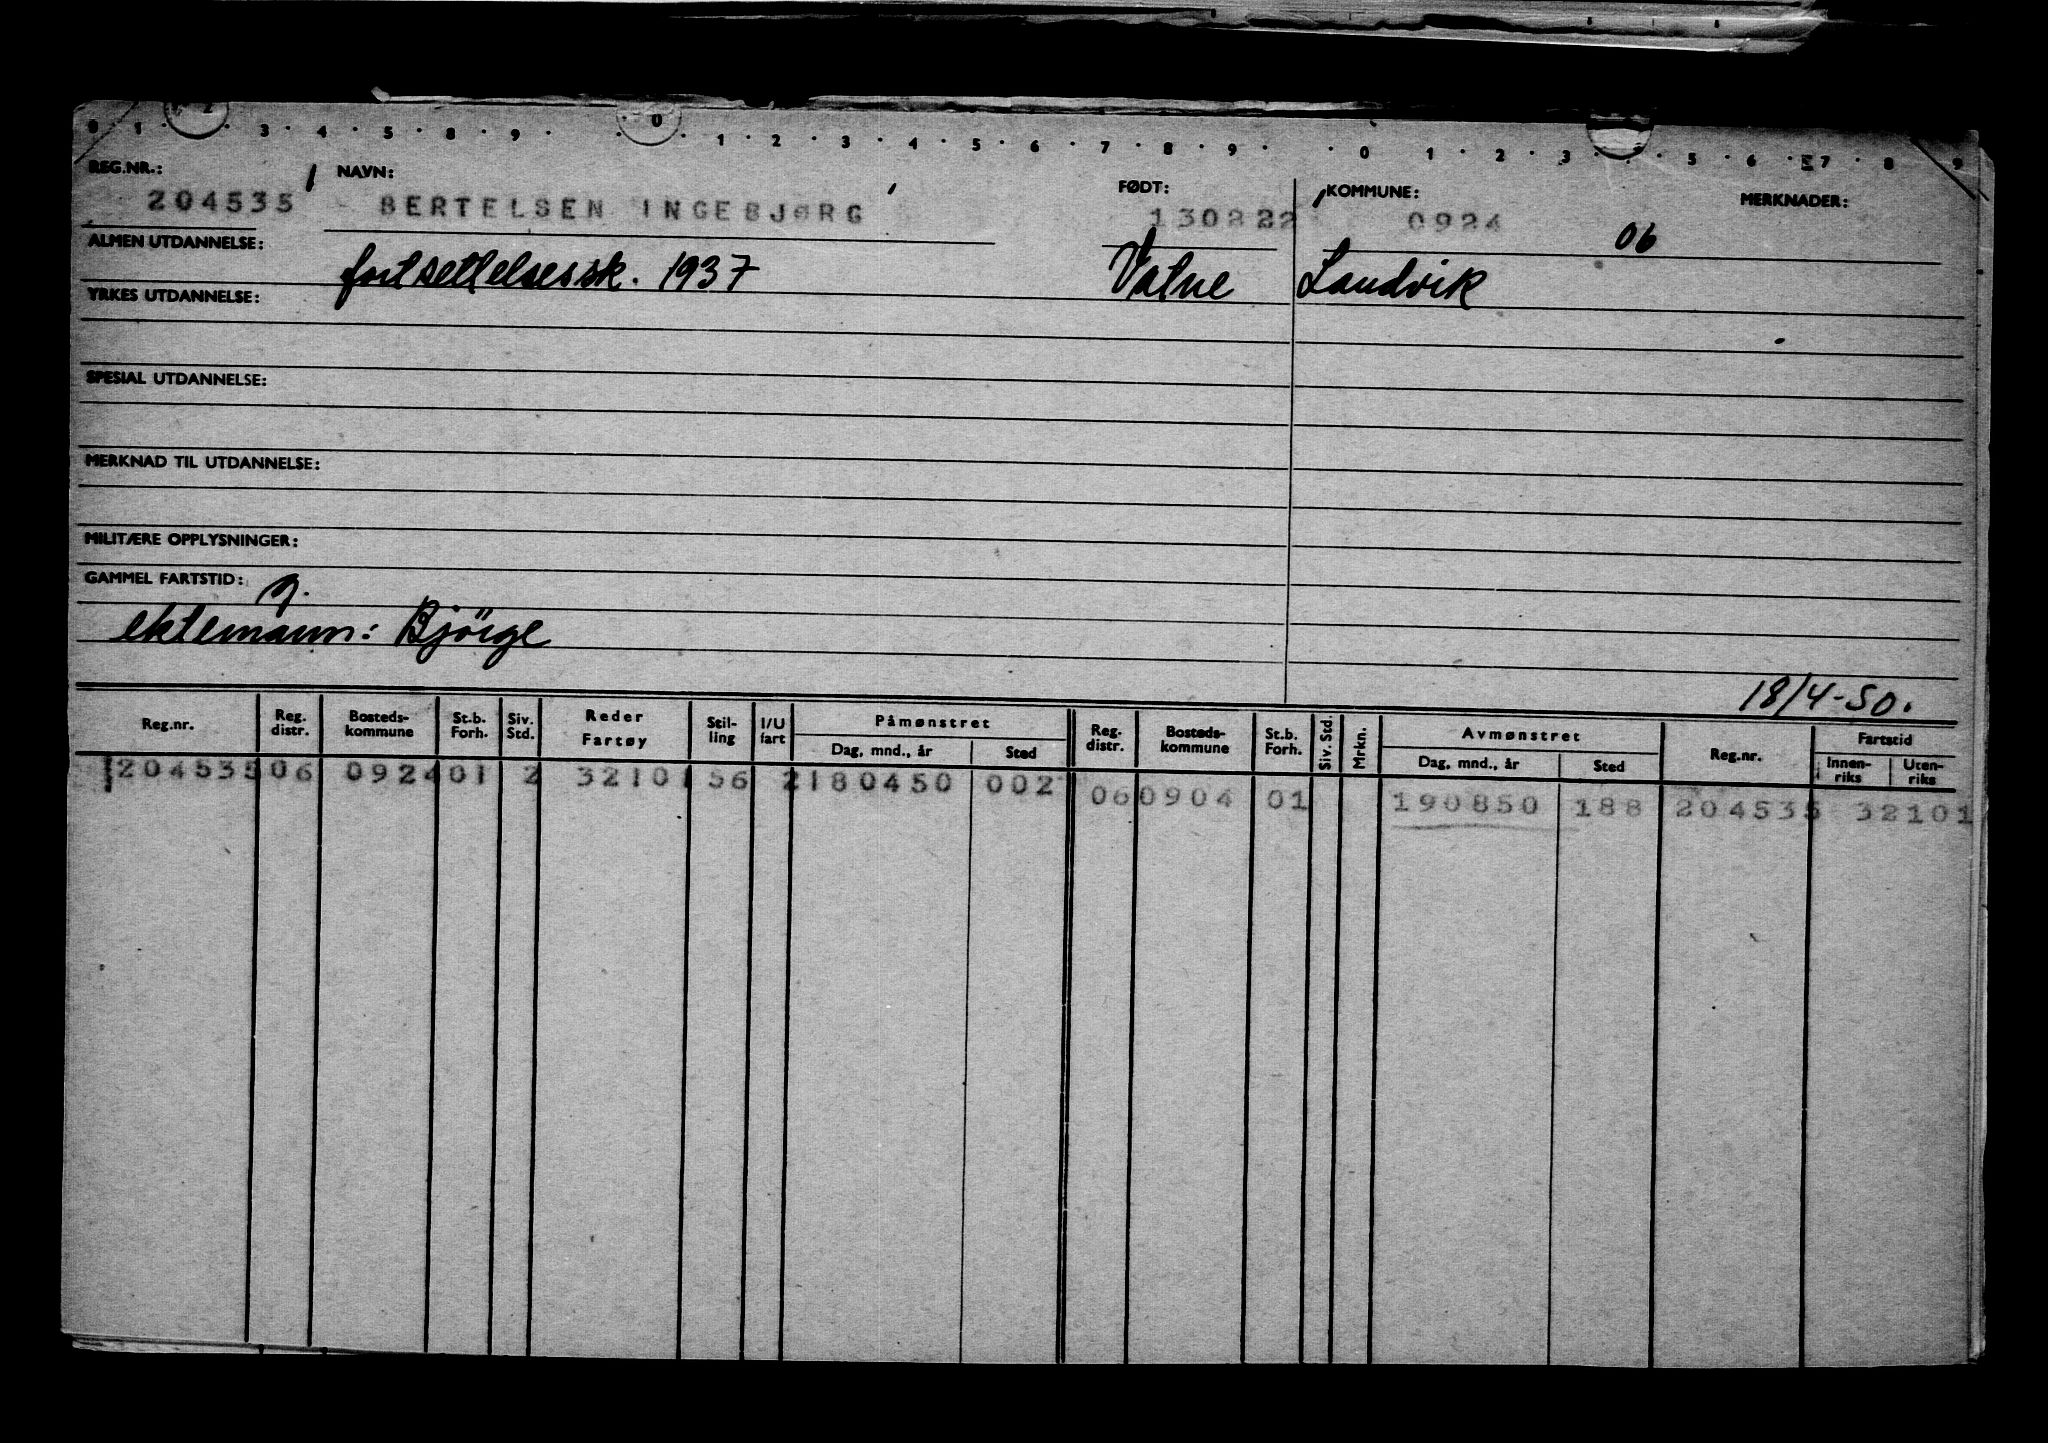 0 1 · · 3 · 4 · 5 · 8 · 9 · · 0 · 1 · 2 · 3 · 4 · 5 · 6 · 7 · 8 · 9 · · 0 · 1 · 2 · 3 · · 5 · 6 · 7 · 8 · 9
REG.NR.: NAVN: FØDT: KOMMUNE: MERKNADER:
204535 BERTELSEN INGEBJØRG 130222 0924 06
ALMEN UTDANNELSE: fortsettelsessk. 1937 Vatne Landvik
YRKES UTDANNELSE:
SPESIAL UTDANNELSE:
MERKNAD TIL UTDANNELSE:
MILITÆRE OPPLYSNINGER:
GAMMEL FARTSTID:
g.
ektemann: Björge
18/4-50.
Reg.nr. Reg. distr. Bosteds-kommune St.b. Forh. Siv. Std. Reder Fartøy Stil-ling I/U fart Påmønstret Dag, mnd., år Sted Reg. distr. Bosteds-kommune St.b. Forh. Siv. Std. Mrkn. Avmønstret Dag, mnd., år Sted Reg.nr. Fartstid Innen-riks Uten-riks
204535 06 0924 01 2 32101 56 2 180450 002 06 0904 01 190850 188 204535 32101